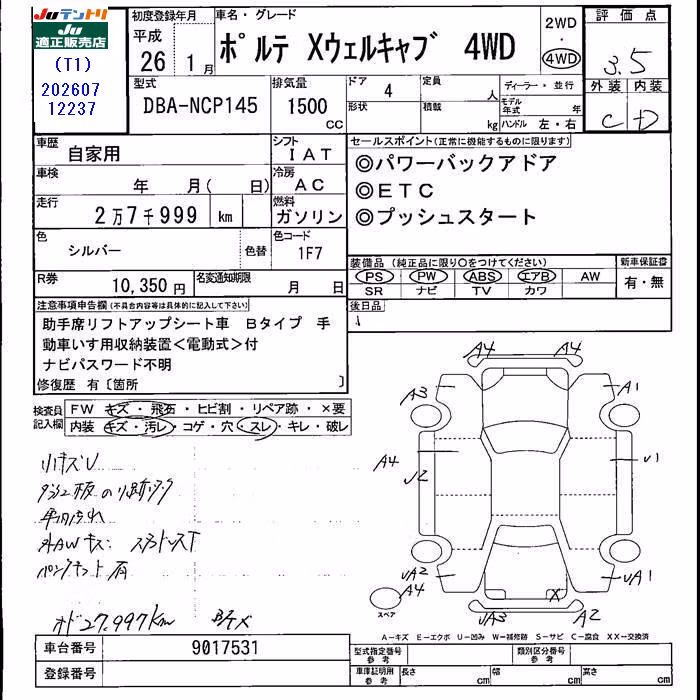 Juテントリ
Ju
適正販売店
(T1)
202607
12237
初度登録年月
平成
26 1月
車名・グレード
ポルテ Xウェルキャブ 4WD
2WD
・
4WD
評価点
3.5
外装 内装
C D
型式
DBA-NCP145
排気量
1500
cc
ドア 4
形状
定員
人
積載
kg
ディーラー・並行
モデル年式
年
ハンドル 左・右
車歴
自家用
シフト
IAT
車検
年 月( 日)
冷房
AC
走行
2万7千999 km
燃料
ガソリン
色
シルバー
色替
色コード
1F7
R券
10,350円
名変通知期限
月 日
セールスポイント(正常に機能するものに限ります)
◎パワーバックアドア
◎ETC
◎プッシュスタート
装備品(純正品に限り○をつけてください)
PS PW ABS エアB AW
SR ナビ TV カワ
新車保証書
有・無
後日品
注意事項申告欄(不具合内容等は具体的に記入して下さい)
助手席リフトアップシート車 Bタイプ 手
動車いす用収納装置<電動式>付
ナビパスワード不明
修復歴 有〔箇所 〕
検査員記入欄
FW キズ・飛石・ヒビ割・リペア跡・×要
内装 キズ・汚レ・コゲ・穴・スレ・キレ・破レ
小キズU
オド27,997km
A4 A4
A3 A1
A4 U2 U1
UA2 UA1
A4
スペア
X
UA3 A2
A-キズ E-エクボ U-凹み W-補修跡 S-サビ C-腐食 XX-交換済
車台番号
9017531
登録番号
型式指定番号
参考
類別区分番号
参考
車庫証明用
参考
長さ cm
幅 cm
高さ cm